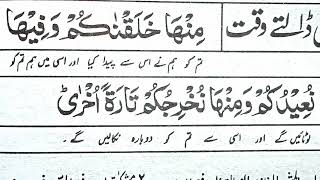 ڈالتے وقت مِنْهَا خَلَقْنٰكُمْ وَفِيْهَا
تم کو ہم نے اس سے پیدا کیا اور اسی میں ہم تم کو
نُعِيْدُكُمْ وَمِنْهَا نُخْرِجُكُمْ تَارَةً اُخْرٰى
لوٹائیں گے اور اسی سے تم کو دوبارہ نکالیں گے۔